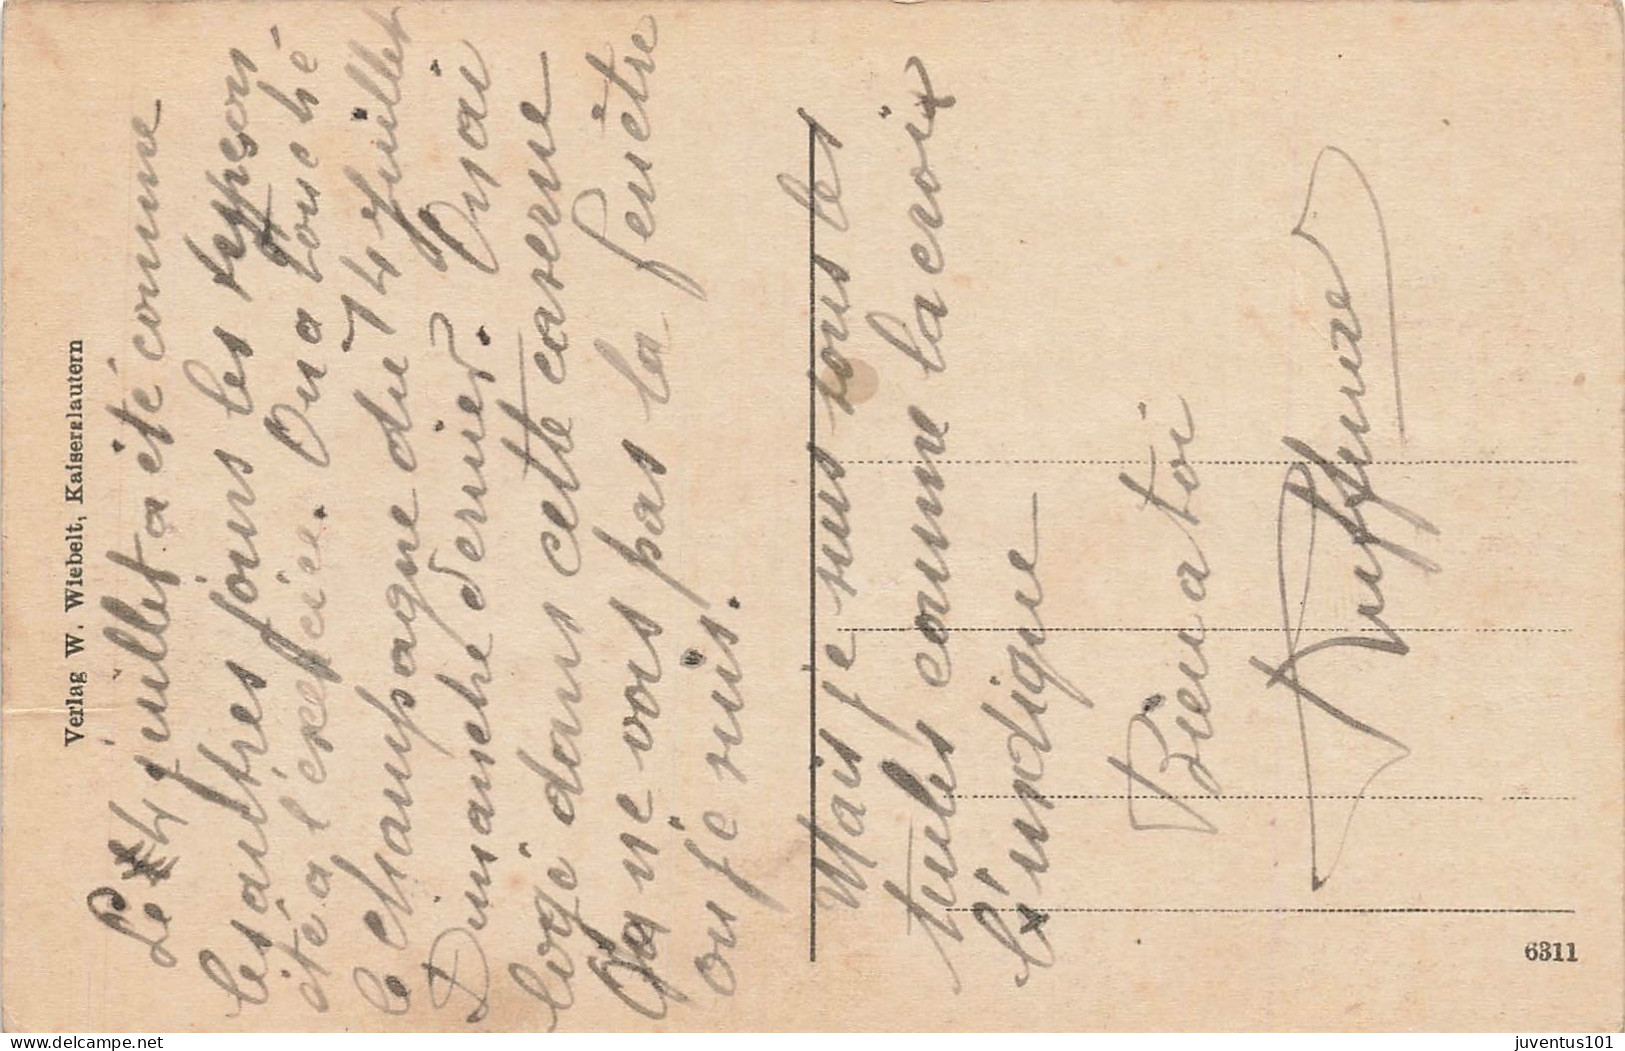 Verlag W. Wiebelt, Kaiserslautern
Le 14 juillet a été comme
les autres jours les
été a l'exercice. On a touché
le champagne du 14 juillet
Dimanche dernier. On ai
logé dans cette caserne
On ne vois pas la fenêtre
ou je suis.
Mais je suis sous les
tuiles comme la croix
l'indique
Bien a toi
6311
juventus101